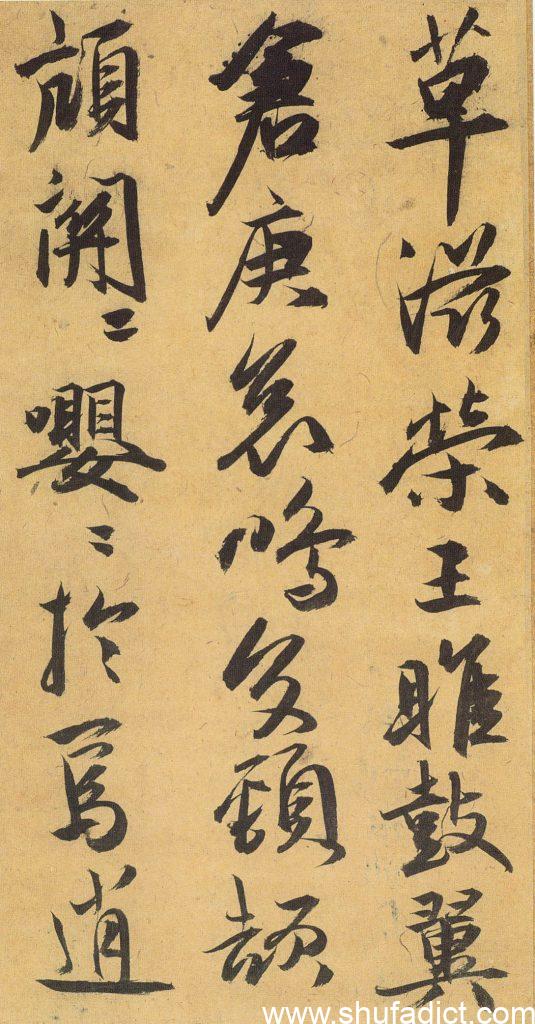 草滋榮王雎鼓翼
倉庚哀鳴交頸頡
頏關〻嚶〻於焉逍
www.shufadict.com